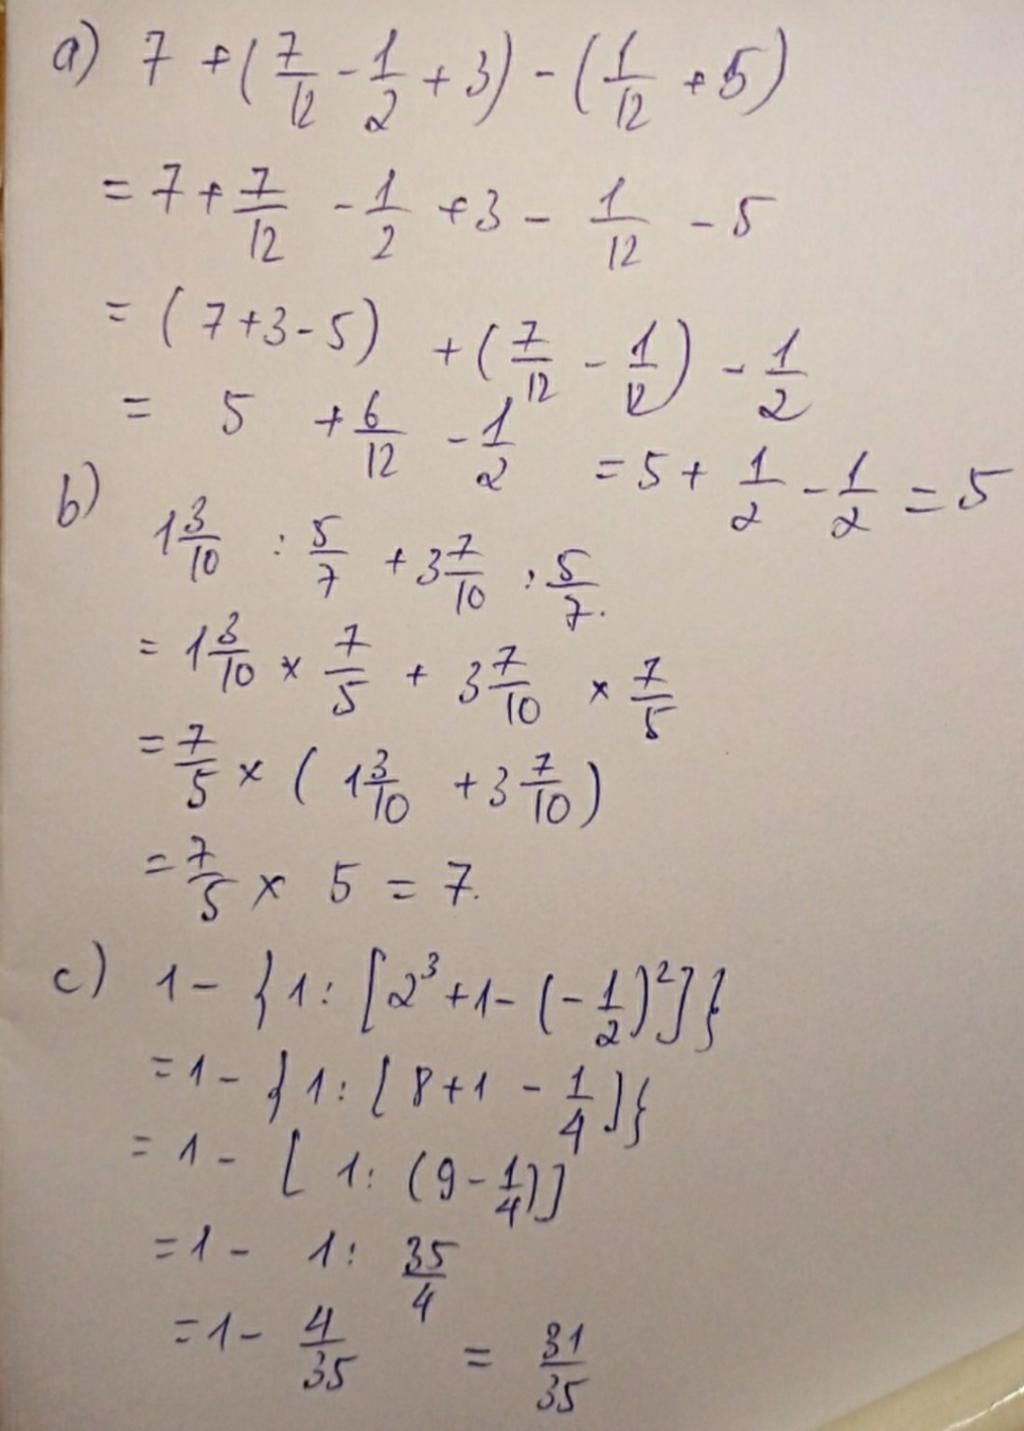 a) 7 + (7/12 - 1/2 + 3) - (1/12 + 5)
= 7 + 7/12 - 1/2 + 3 - 1/12 - 5
= (7+3-5) + (7/12 - 1/12) - 1/2
= 5 + 6/12 - 1/2 = 5 + 1/2 - 1/2 = 5
b)
1 3/10 : 5/7 + 3 7/10 : 5/7.
= 1 3/10 × 7/5 + 3 7/10 × 7/5
= 7/5 × (1 3/10 + 3 7/10)
= 7/5 × 5 = 7.
c) 1 - {1 : [2³ + 1 - (-1/2)²]}
= 1 - {1 : [8 + 1 - 1/4]}
= 1 - [1 : (9 - 1/4)]
= 1 - 1 : 35/4
= 1 - 4/35 = 31/35